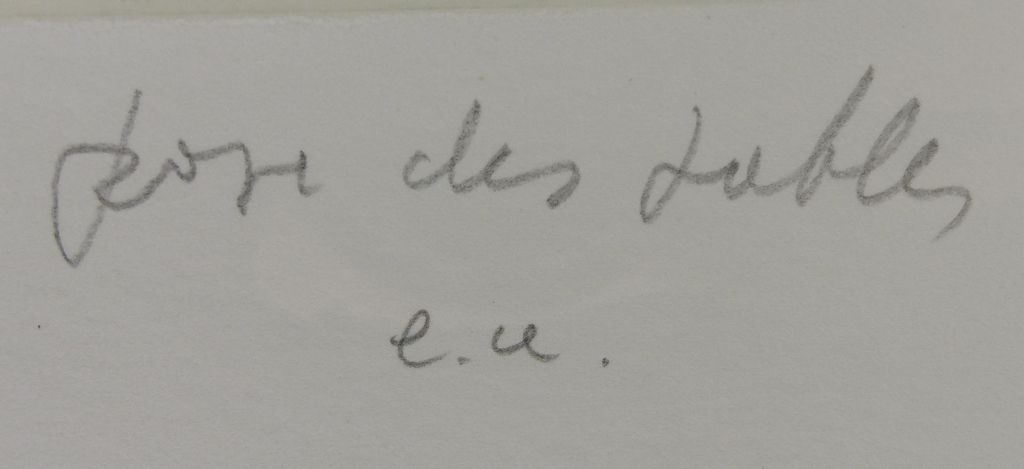 rose des sables
e.a.